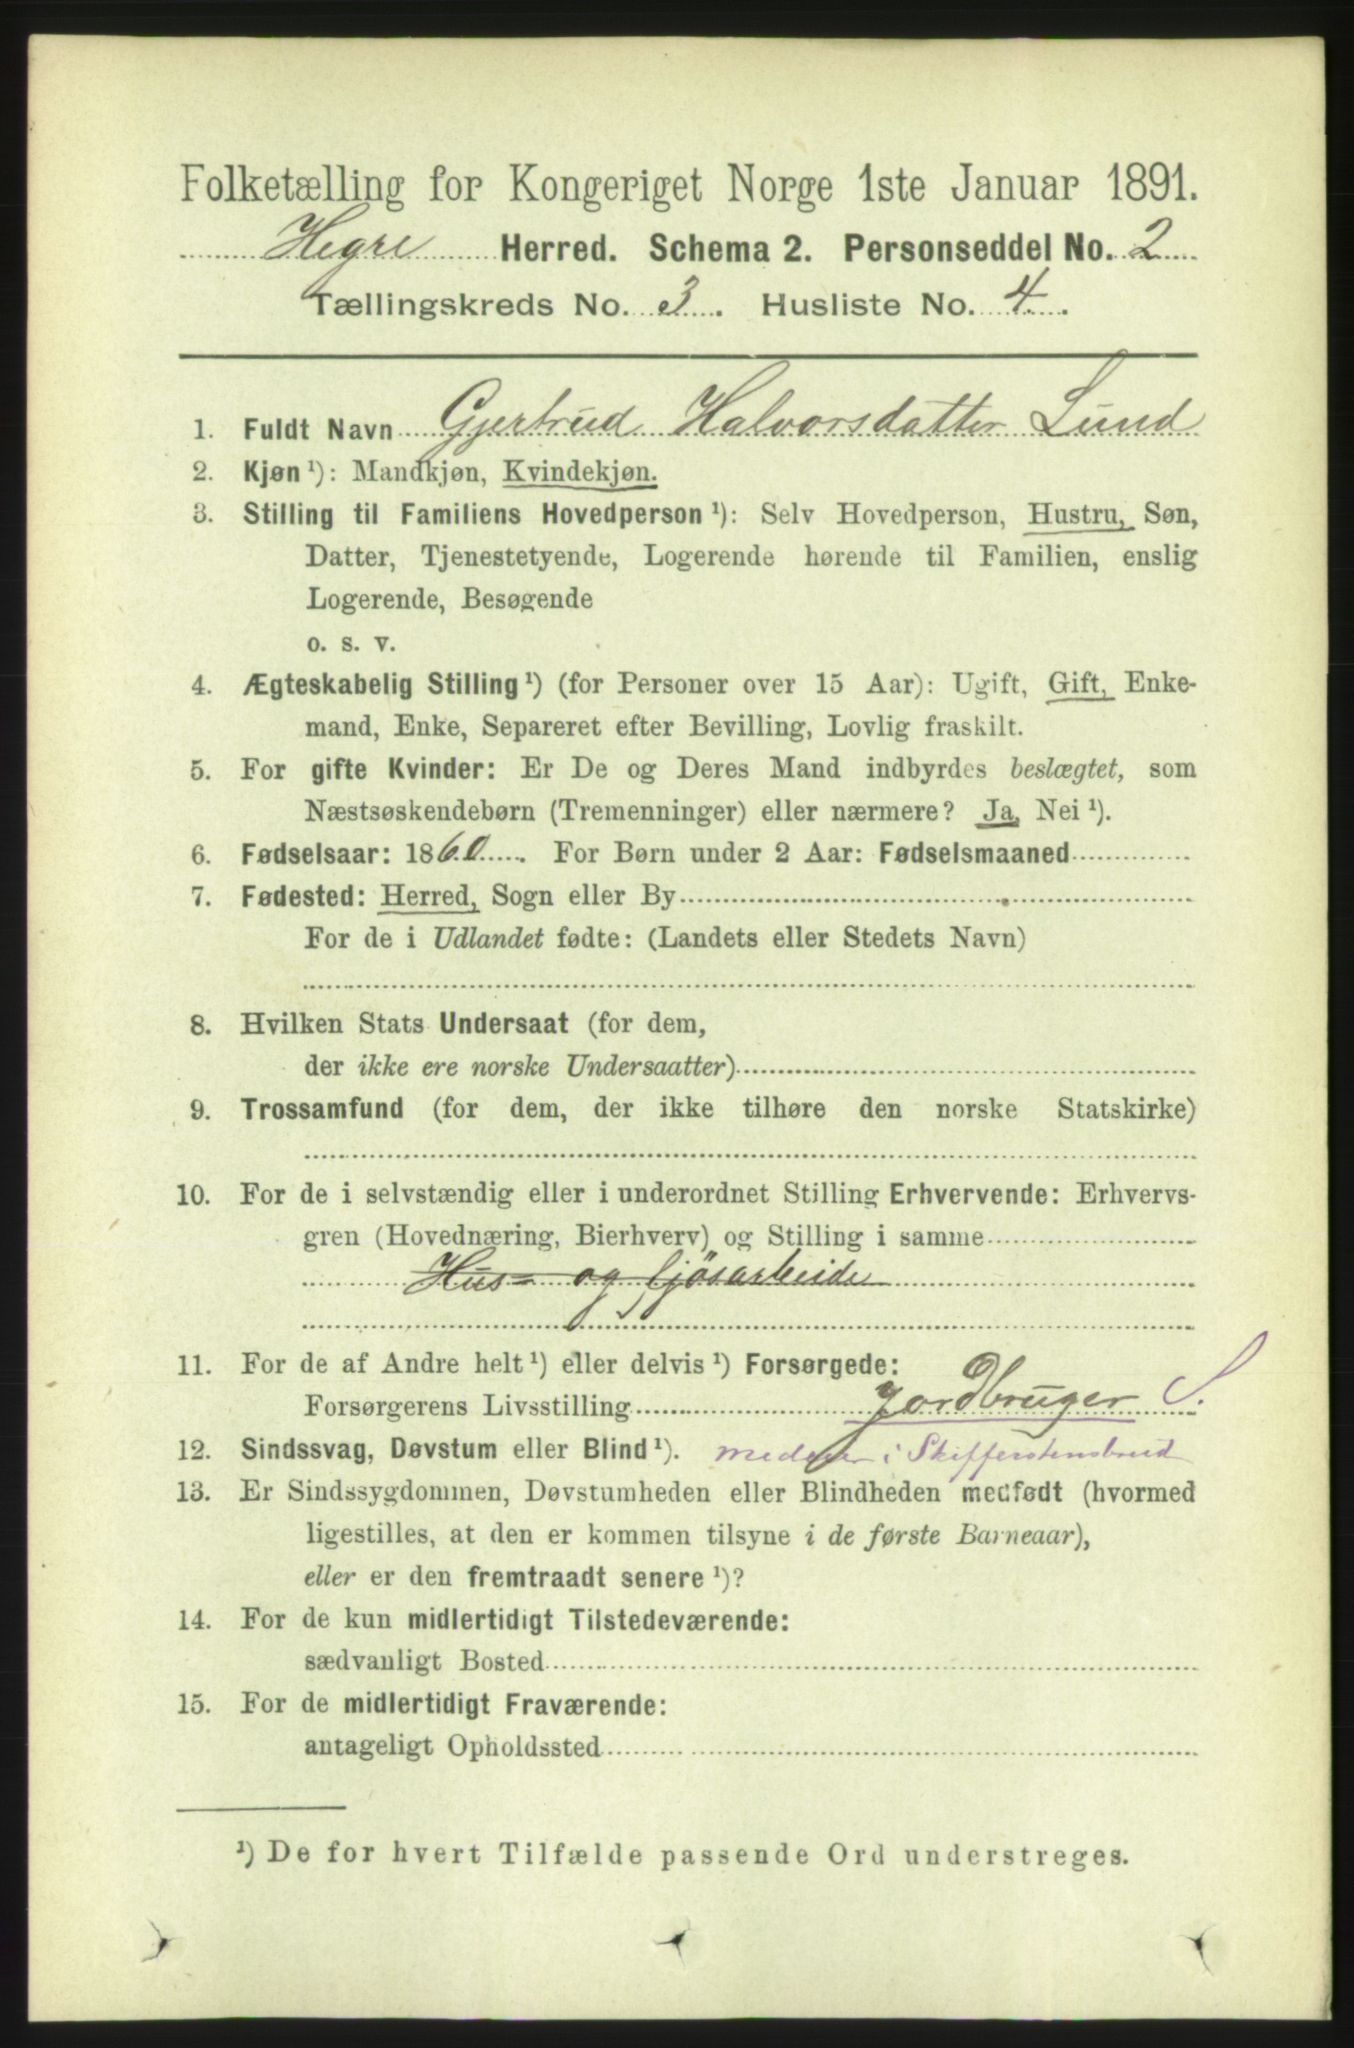 Folketælling for Kongeriget Norge 1ste Januar 1891.
Hegre Herred. Schema 2. Personseddel No. 2
Tællingskreds No. 3. Husliste No. 4.
1. Fuldt Navn Gjertrud Halvorsdatter Lund
2. Kjøn ¹): Mandkjøn, Kvindekjøn.
3. Stilling til Familiens Hovedperson ¹): Selv Hovedperson, Hustru, Søn,
Datter, Tjenestetyende, Logerende hørende til Familien, enslig
Logerende, Besøgende
o. s. v.
4. Ægteskabelig Stilling ¹) (for Personer over 15 Aar): Ugift, Gift, Enke-
mand, Enke, Separeret efter Bevilling, Lovlig fraskilt.
5. For gifte Kvinder: Er De og Deres Mand indbyrdes beslægtet, som
Næstsøskendebørn (Tremenninger) eller nærmere? Ja, Nei ¹).
6. Fødselsaar: 1860. For Børn under 2 Aar: Fødselsmaaned
7. Fødested: Herred, Sogn eller By
For de i Udlandet fødte: (Landets eller Stedets Navn)
8. Hvilken Stats Undersaat (for dem,
der ikke ere norske Undersaatter)
9. Trossamfund (for dem, der ikke tilhøre den norske Statskirke)
10. For de i selvstændig eller i underordnet Stilling Erhvervende: Erhvervs-
gren (Hovednæring, Bierhverv) og Stilling i samme
Hus- og fjøsarbeide
11. For de af Andre helt ¹) eller delvis ¹) Forsørgede:
Forsørgerens Livsstilling Jordbruger S.
12. Sindssvag, Døvstum eller Blind ¹). medeier i Skifferstensbrud
13. Er Sindssygdommen, Døvstumheden eller Blindheden medfødt (hvormed
ligestilles, at den er kommen tilsyne i de første Barneaar),
eller er den fremtraadt senere ¹)?
14. For de kun midlertidigt Tilstedeværende:
sædvanligt Bosted
15. For de midlertidigt Fraværende:
antageligt Opholdssted
¹) De for hvert Tilfælde passende Ord understreges.